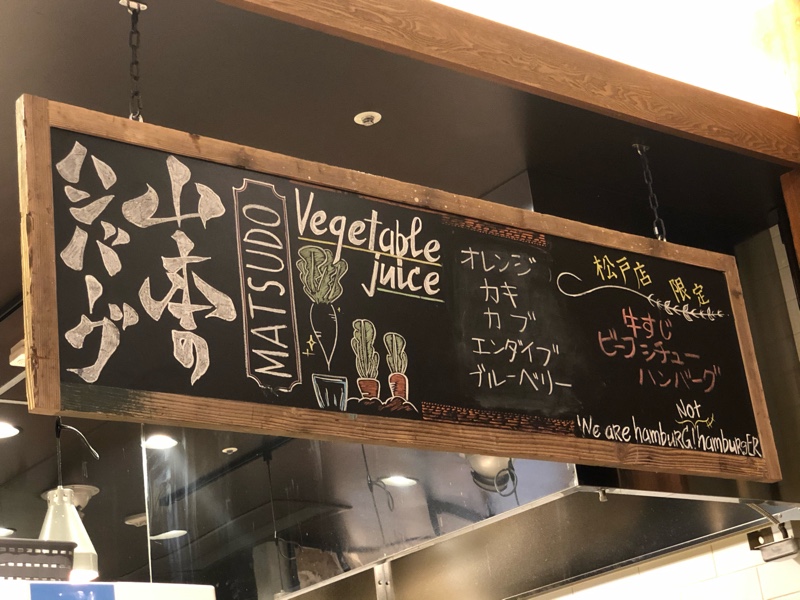 山本の
ハンバーグ
MATSUDO
Vegetable
juice
オレンジ
カキ
カブ
エンダイブ
ブルーベリー
松戸店
限定
牛すじ
ビーフシチュー
ハンバーグ
Not
We are hambURG! hambuRGER